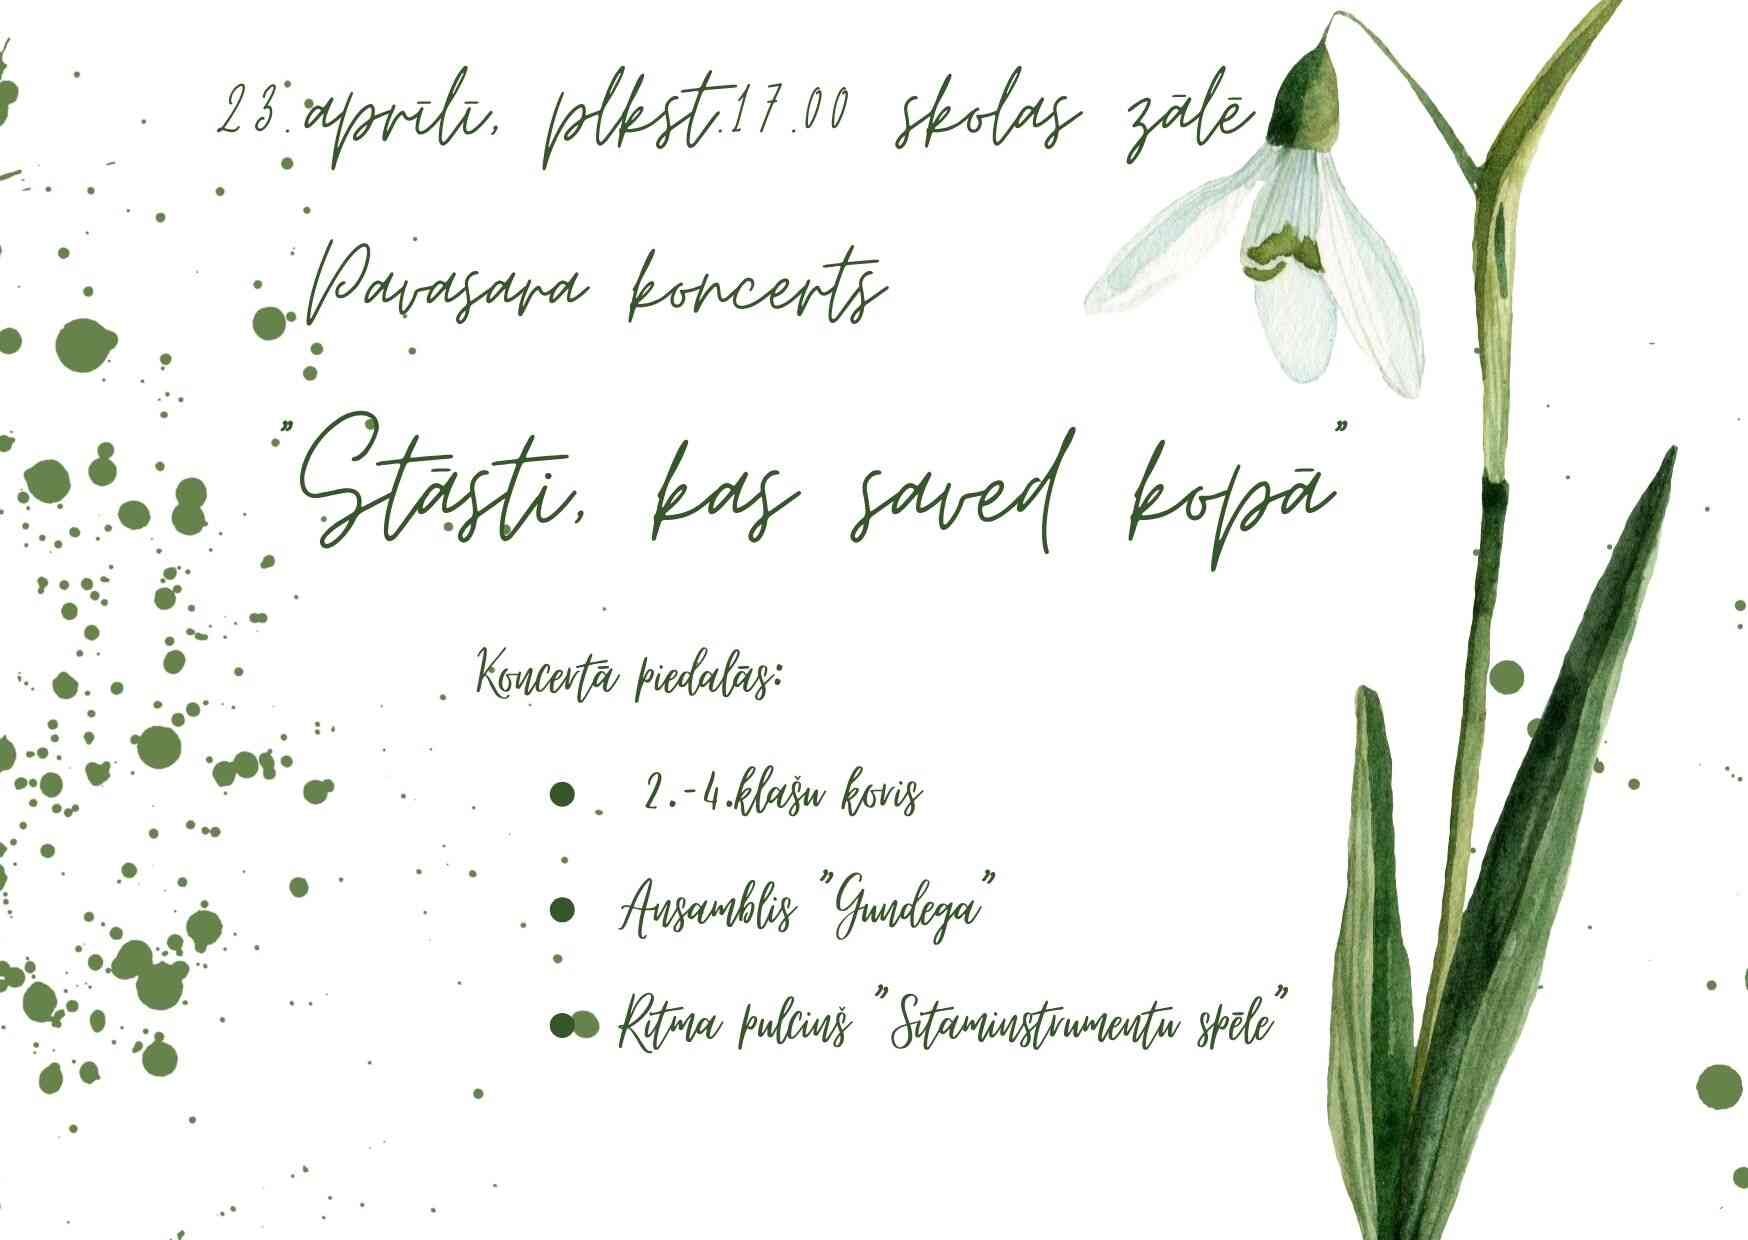 23.aprīlī, plkst.17.00 skolas zālē
Pavasara koncerts
"Stāsti, kas saved kopā"
Koncertā piedalās:
● 2.-4.klašu koris
● Ansamblis "Gundega"
● Ritma pulcinš "Sitaminstrumentu spēle"